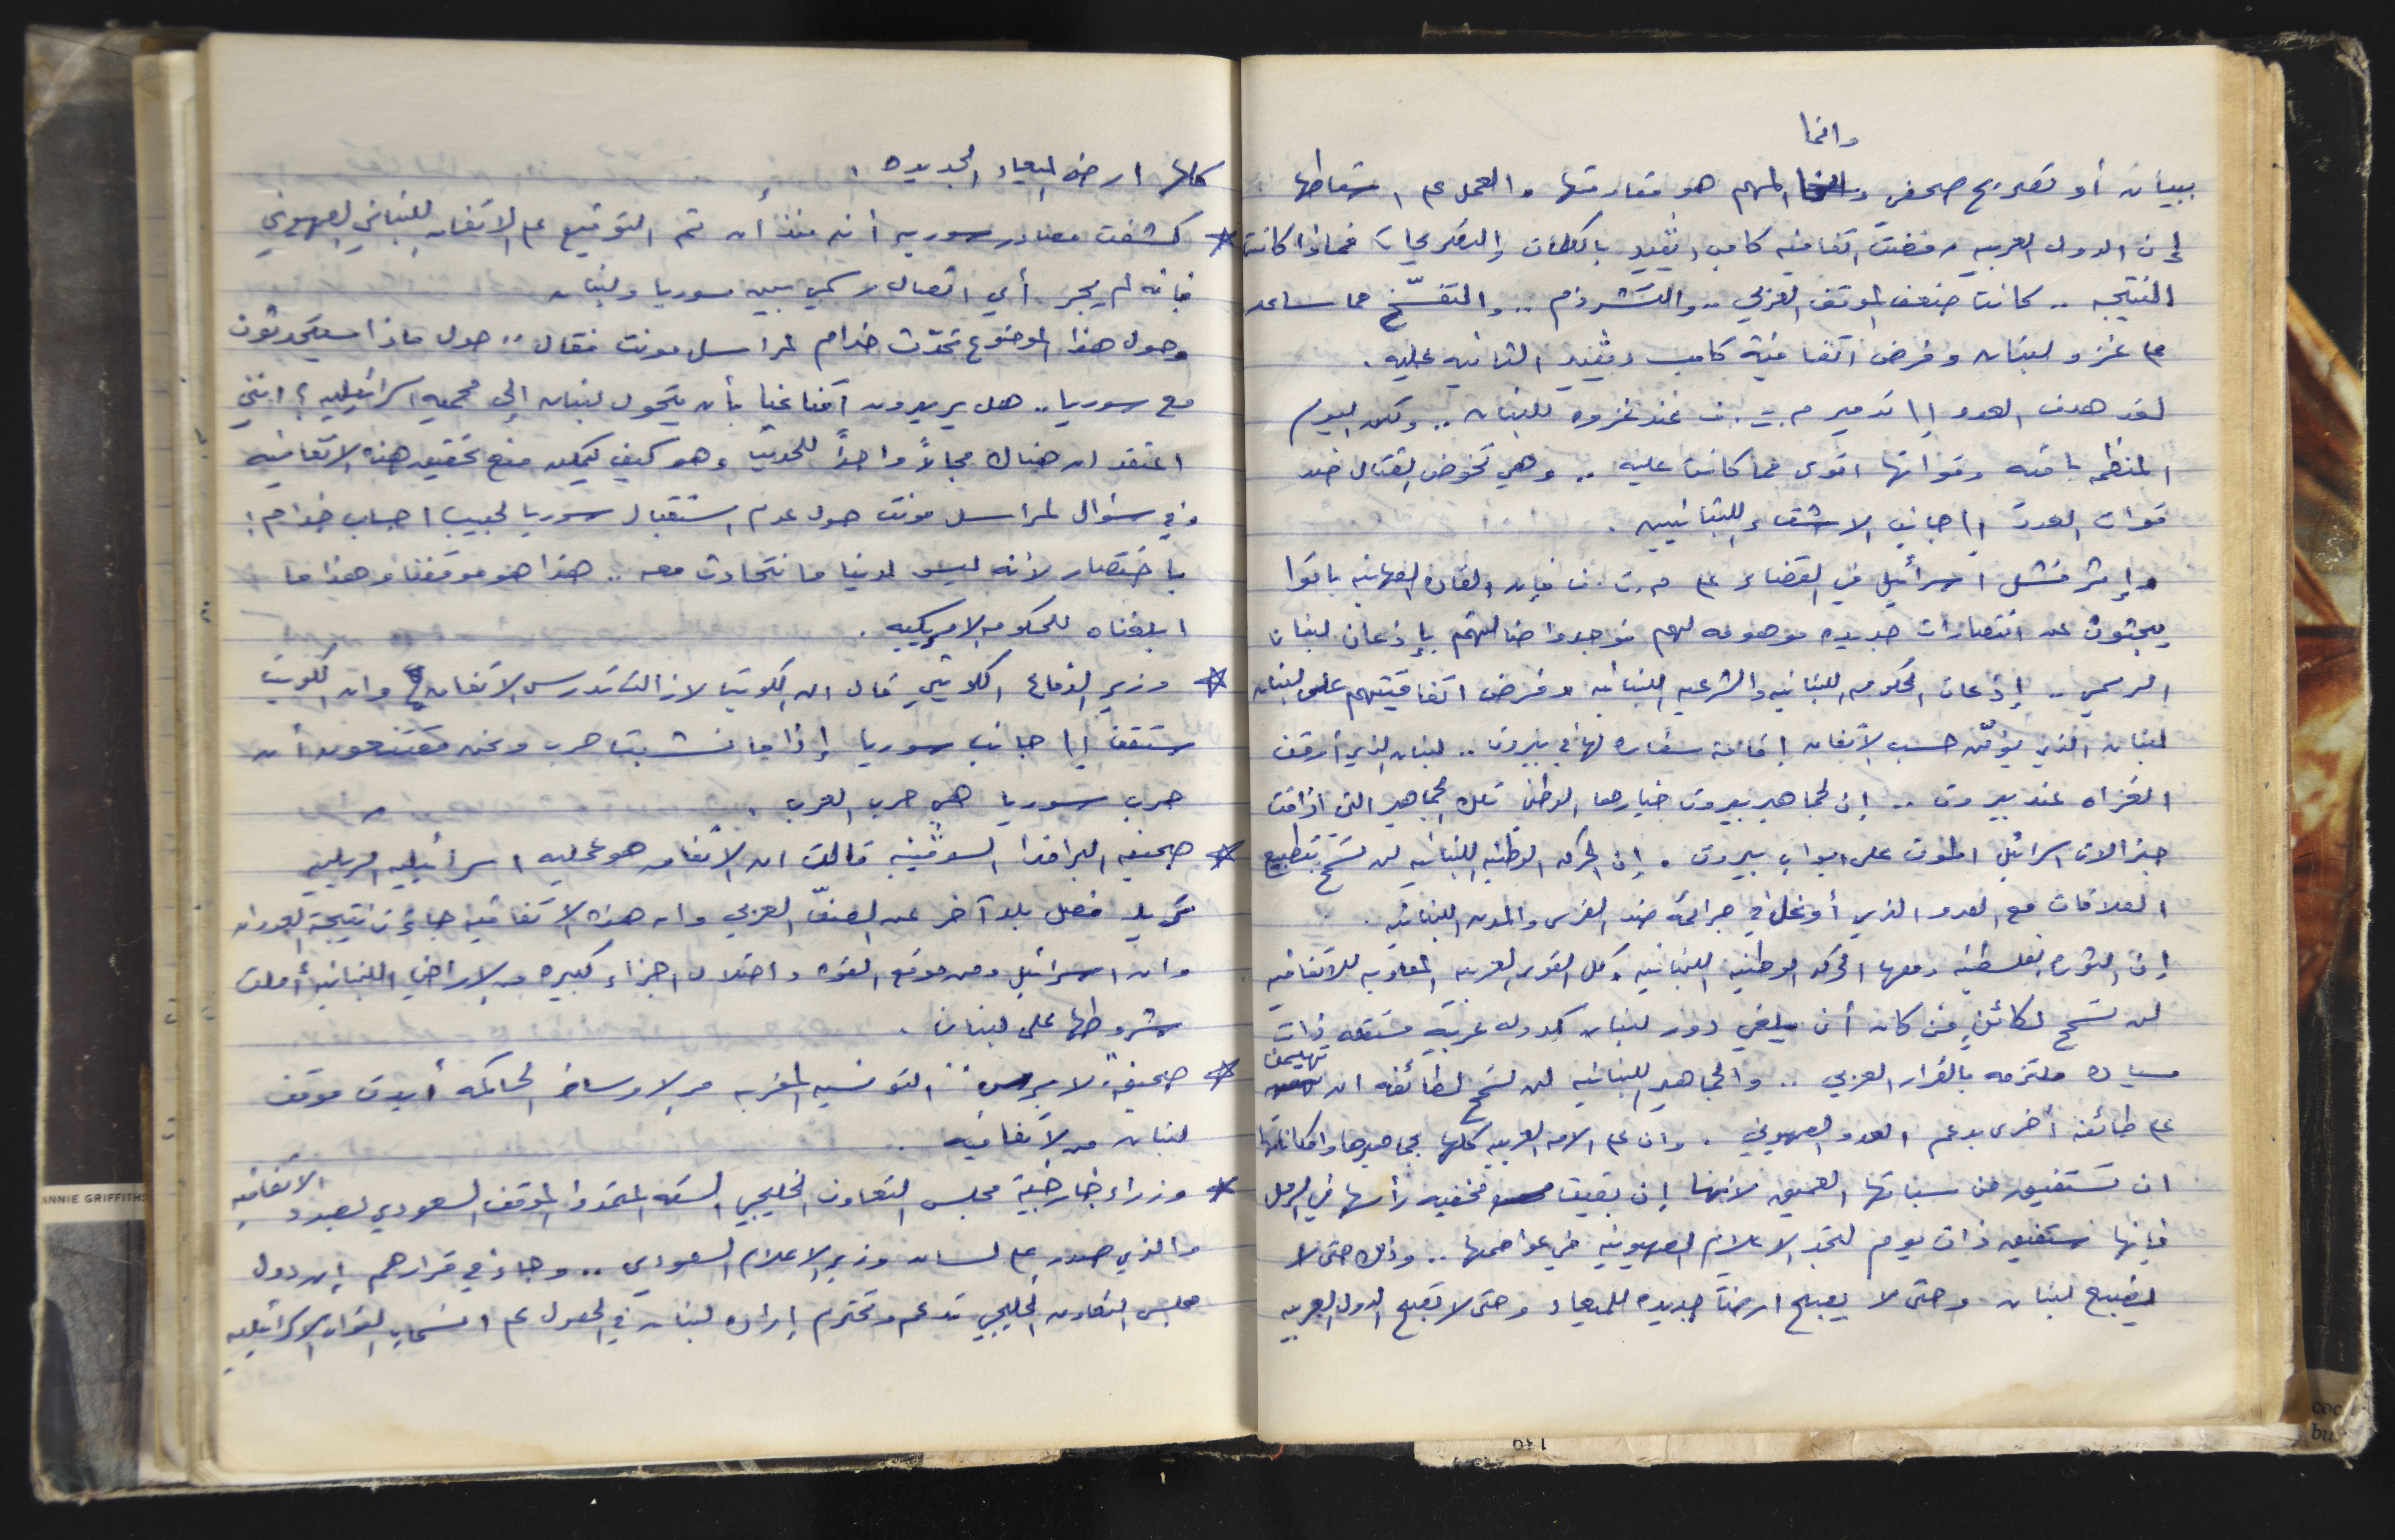 وانما
ببيان أو تصريح صحفي المهم هو مقاومتها والعمل على اسقاطها
إن الدول العربيه رفضت اتفاقيه كامب ديفيد بالكلمات والتصريحات فماذا كانت
النتيجه .. كانت ضعف الموقف العربي .. والتشرذم .. والتفسّخ مما ساعد
على غزو لبنان وفرض اتفاقية كامب ديفيد الثانيه عليه .
لقد هدف العدو إلى تدمير م . ت . ف عند غزوه للبنان .. ولكن اليوم
المنظمه باقيه وقواتها اقوى مما كانت عليه .. وهي تخوض القتال ضد
قوات العدو إلى جانب الاشقاء اللبنانيين .
وإثر فشل اسرائيل في القضاء على م . ت . ف فإن القاده الصهاينه باتوا
يبحثون عن انتصارات جديده موهومه لهم فوجدوا ضالتهم بإذعان لبنان
الرسمي .. إذعان الحكومه اللبنانيه والشرعيه اللبنانيه وفرض اتفاقيتهم على لبنان
لبنان الذي يؤمّن حسب الاتفاق اقامة سفاره لها في بيروت .. لبنان الذي أوقف
الغزاه عند بيروت .. إن لجماهير بيروت خيارها الوطني تلك الجماهير التي اذاقت
جنرالات اسرائيل الموت على ابواب بيروت . إن الحركه الوطنيه اللبنانيه لن تسمح بتطبيع
العلاقات مع العدو الذي أوغل في جرائمه ضد القرى والمدن اللبنانيه .
إن الثوره الفلسطينيه ومعها الحركه الوطنيه اللبنانيه وكل القوى العربيه المعاديه للاتفاقيه
لن تسمح لكائنٍ من كان أن يلغي دور لبنان كدوله عربية مستقله ذات
سياده ملتزمه بالقرار العربي .. والجماهير اللبنانيه لن تسمح لطائفه ان تهيمن
على طائفه أخرى بدعم العدو الصهيوني . وان على الامه العربيه كلها بجماهيرها وامكاناتها
ان تستفيق من سباتها العميق لانها إن بقيت مخفيه رأسها في الرمل
فإنها ستفيق ذات يوم لتجد الاعلام الصهيونيه في عواصمها .. وذلك حتى لا
يضيع لبنان وحتى لا يصبح ارضاً جديده للميعاد وحتى لا تصبح الدول العربيه
كلها ارض الميعاد الجديده .
* كشفت مصادر سوريه أنه منذ أن تم التوقيع على الاتفاق اللبناني الصهيوني
فإنه لم يجر أي اتصال رسمي بين سوريا ولبنان
وحول هذا الموضوع تحدّث خدام لمراسل مونت فقال .. حول ماذا سيتحدثون
مع سوريا .. هل يريدون اقناعنا بأن يتحول لبنان إلى محميه اسرائيليه ؟ انني
اعتقد ان هناك مجالاً واحداً للحديث وهو كيف يمكن منع تحقيق هذه الاتفاقيه
وفي سؤال لمراسل مونت حول عدم استقبال سوريا لحبيب اجاب خدام :
باختصار لأنه ليس لدينا ما نتحادث معه .. هذا هو موقفنا وهذا ما
ابلغناه للحكومه الامريكيه .
* وزير الدفاع الكويتي قال ان الكويت لازالت تدرس الاتفاق وان الكويت
ستقف إلى جانب سوريا إذا ما نشبت حرب ونحن مقتنعون أن
حرب سوريا هي حرب العرب .
* صحيفه البرافدا السوفيتيه قالت ان الاتفاق هو عمليه اسرائيليه امريكيه
فصل بلد آخر عن الصفّ العربي وان هذه الاتفاقيه جاءت نتيجة العدوان
وان اسرائيل ومن موقع القوه واحتلال اجزاء كبيره من الاراضي اللبنانيه أملت
شروطها على لبنان .
* صحيفة " لابرس " التونسيه المقربه من الاوساط الحاكمه أيدت موقف
لبنان من الاتفاقيه .
* وزراء خارجية مجلس التعاون الخليجي السته اعتمدوا الموقف السعودي بصدد الاتفاقيه
والذي صدر على لسان وزير الاعلام السعودي .. وجاء في قرارهم إن دول
مجلس التعاون الخليجي تدعم وتحترم إراده لبنان في الحصول على انسحاب القوات الاسرائيليه
ANNIE GRIFFITHS